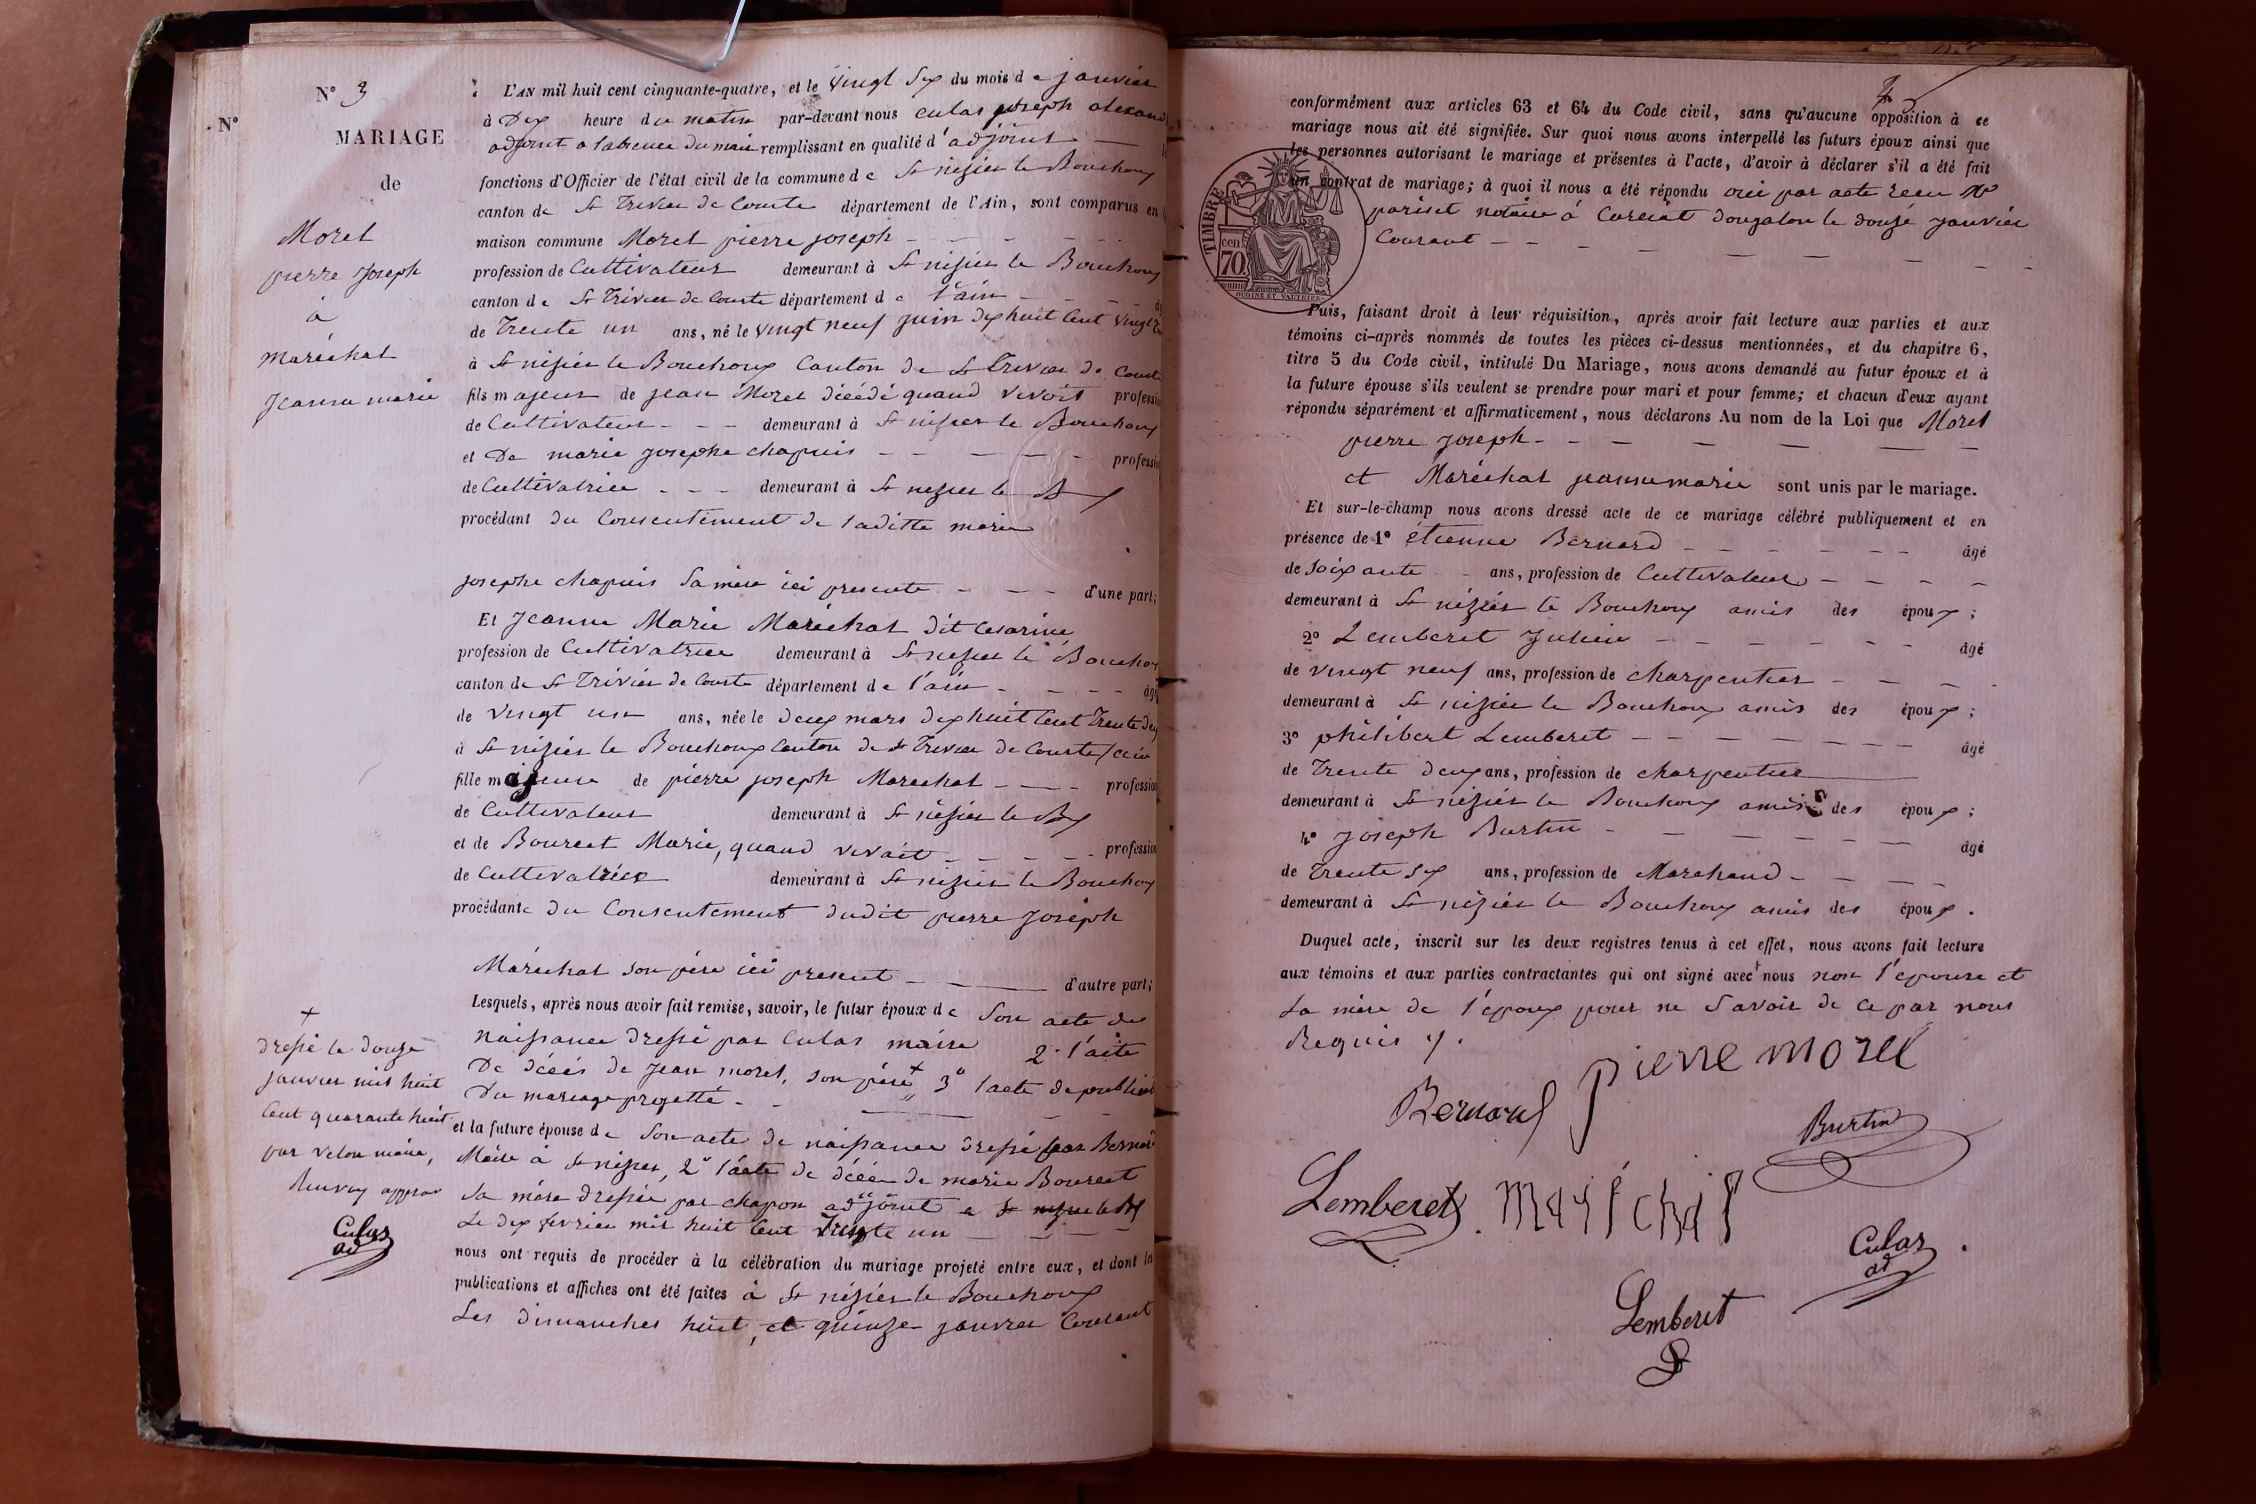 N° 3
N°
MARIAGE
de
Morel
pierre Joseph
à
Maréchal
Jeanne marie
L'AN mil huit cent cinquante-quatre, et le vingt six du mois de janvier
à Dix heure du matin par-devant nous culas joseph alexand
adjoint a l'absence du maire remplissant en qualité d'adjoint
fonctions d'Officier de l'état civil de la commune de St nizier le Bouchoux
canton de St Trivier de Courte département de l'Ain, sont comparus en
maison commune Morel pierre joseph
profession de Cultivateur demeurant à St nizier le Bouchoux
canton de St Trivier de Courte département de l'ain
de Trente un ans, né le vingt neuf juin dix huit Cent vingt
à St nizier le Bouchoux Canton de St Trivier de Courte
fils majeur de jean Morel décédé quand vivoit profession
de Cultivateur demeurant à St nizier le Bouchoux
et De marie josephe chapuis profession
de Cultivatrice demeurant à St nizier le Bx
procédant du Consentement de laditte marie
josephe chapuis Sa mère ici presente d'une part;
Et Jeanne Marie Maréchal dit Cesarine
profession de Cultivatrice demeurant à St nizier le Bouchoux
canton de St Trivier de Courte département de l'ain âgé
de vingt un ans, née le deux mars dix huit Cent Trente deux
à St nizier le Bouchoux Canton de St Trivier de Courte / ain
fille majeure de pierre joseph Marechal profession
de Cultivateur demeurant à St nizier le Bx
et de Bourcet Marie, quand vivait profession
de Cultivatrice demeurant à St nizier le Bouchoux
procédante du Consentement dudit pierre Joseph
Maréchal son père ici présent d'autre part;
Lesquels, après nous avoir fait remise, savoir, le futur époux de Son acte de
naissance dressé par Culas maire 2° l'acte
De décès de Jean morel, son père + 3° l'acte de publicat
Du mariage projetté
et la future épouse de Son acte de naissance dressé par Bernard
Maire à St nizier, 2° l'acte de décès de marie Bourcet
Sa mère dressée par chapon adjoint a St nizier le Bx
Le dix fevrier mil huit Cent Trente un
nous ont requis de procéder à la célébration du mariage projeté entre eux, et dont la
publications et affiches ont été faites à St nizier le Bouchoux
Les dimanches huit, et quinze janvier Courant
+
dressé le douze
janvier mil huit
Cent quarante huit
par Velon maire,
Renvoy approu
Culas
ad
conformément aux articles 63 et 64 du Code civil, sans qu'aucune opposition à ce
mariage nous ait été signifiée. Sur quoi nous avons interpellé les futurs époux ainsi que
les personnes autorisant le mariage et présentes à l'acte, d'avoir à déclarer s'il a été fait
un contrat de mariage; à quoi il nous a été répondu oui par acte recu Me
pariset notaire à Curciat dongalon le douze janvier
Courant
TIMBRE
cen
70
OUDINE ET VAUTHIER
Puis, faisant droit à leur réquisition, après avoir fait lecture aux parties et aux
témoins ci-après nommés de toutes les pièces ci-dessus mentionnées, et du chapitre 6,
titre 5 du Code civil, intitulé Du Mariage, nous avons demandé au futur époux et à
la future épouse s'ils veulent se prendre pour mari et pour femme; et chacun d'eux ayant
répondu séparément et affirmativement, nous déclarons Au nom de la Loi que Morel
pierre joseph
et Maréchal jeanne marie sont unis par le mariage.
Et sur-le-champ nous avons dressé acte de ce mariage célébré publiquement et en
présence de 1° étienne Bernard âgé
de Soixante ans, profession de Cultivateur
demeurant à St nizier le Bouchoux amis des époux;
2° Lemberet Julien âgé
de vingt neuf ans, profession de charpentier
demeurant à St nizier le Bouchoux amis des époux;
3° philibert Lemberet âgé
de Trente deux ans, profession de charpentier
demeurant à St nizier le Bouchoux amis des époux;
4° Joseph Burtin âgé
de Trente six ans, profession de Marchand
demeurant à St nizier le Bouchoux amis des époux.
Duquel acte, inscrit sur les deux registres tenus à cet effet, nous avons fait lecture
aux témoins et aux parties contractantes qui ont signé avec nous non l'épouse et
La mère de l'époux pour ne Savoir de ce par nous
Requis
pierre morel
Bernard
Burtin
Lemberet
Maréchal
Culas
ad
Lemberet